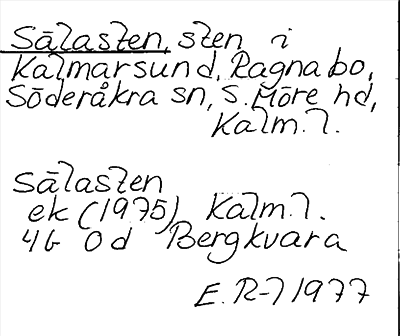 Sälasten, sten i
Kalmarsund, Ragnabo,
Söderåkra sn, S. Möre hd,
Kalm. l.
Sälasten
ek (1975) Kalm. l.
4G 0d Bergkvara
E. R-l 1977